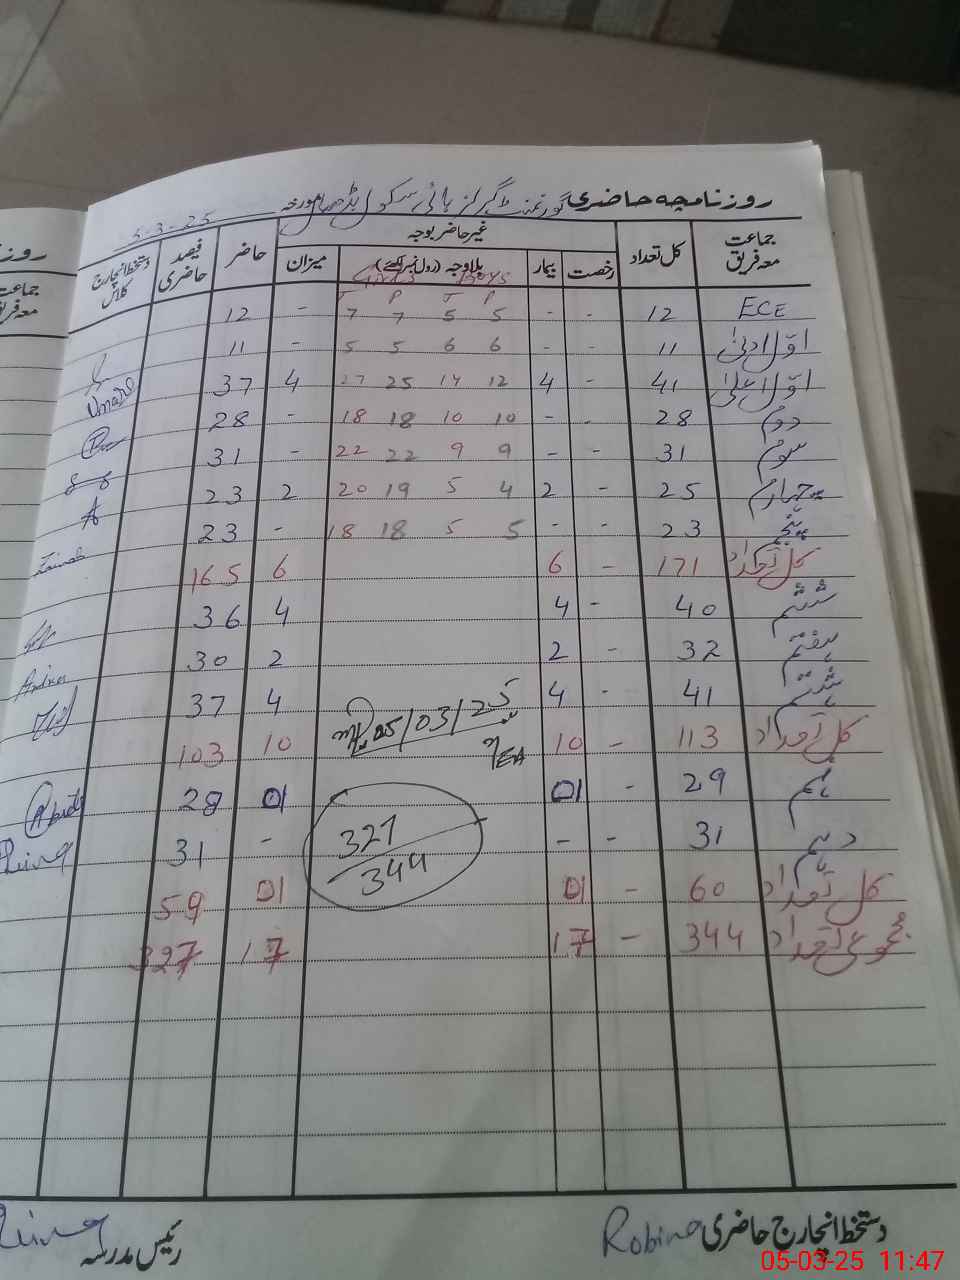 روزنامچہ حاضری گورنمنٹ گرلز ہائی سکول بڈھا مورخہ 5-3-25
جماعت معہ فریق کل تعداد غیر حاضر بوجہ حاضر فیصد حاضری دستخط انچارج کلاس
رخصت بیمار بلاوجہ (رول نمبر لکھئے) میزان
Girls Boys
T P T P
ECE 12 - - 5 5 7 7 - 12
اوّل ادنیٰ 11 - - 6 6 5 5 - 11
اوّل اعلیٰ 41 - 4 12 14 25 27 4 37 Umara
دوم 28 - - 10 10 18 18 - 28
سوم 31 - - 9 9 22 22 - 31
چہارم 25 - 2 4 5 19 20 2 23
پنجم 23 - - 5 5 18 18 - 23 Zainab
کل تعداد 171 - 6 6 165
ششم 40 - 4 4 36
ہفتم 32 - 2 2 30
ہشتم 41 - 4 4 37
05/03/25
کل تعداد 113 - 10 10 103
نہم 29 - 01 01 28
دہم 31 - - - 31
327
344
کل تعداد 60 - 01 01 59
مجموعی تعداد 344 - 17 17 327
دستخط انچارج حاضری Robina رئیس مدرسہ
05-03-25 11:47
روز
جماعت
معہ فریق